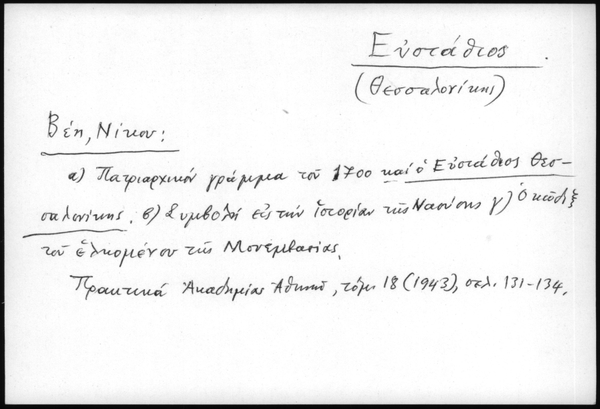 Εὐστάθιος.
(Θεσσαλονίκης)
Βέη, Νίκου:
α) Πατριαρχικόν γράμμα τοῦ 1700 καί ὁ Εὐστάθιος Θεσ-
σαλονίκης. β) Συμβολαί εἰς τήν ἱστορίαν τῆς Ναούσης γ) Ὁ κῶδιξ
τοῦ Ἑλκομένου τῆς Μονεμβασίας.
Πρακτικά Ἀκαδημίας Ἀθηνῶν, τόμ. 18 (1943), σελ. 131-134.